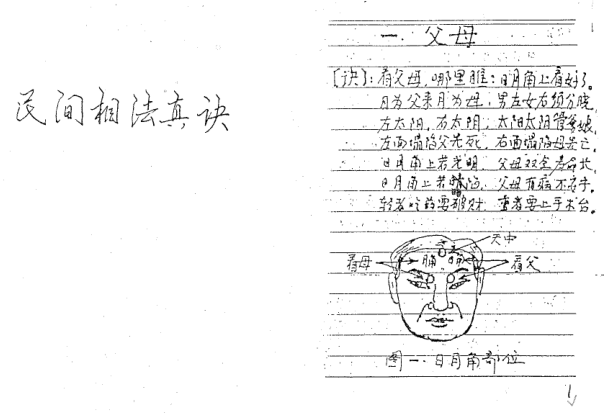 民间相法真诀
一、父母
[诀]：看父母，哪里瞧：日月角上看好了。
日为父来月为母，男左女右须分晓，
左太阳，右太阴，太阳太阴管爹娘，
左面塌陷父先死，右面塌陷母先亡，
日月角上若光明，父母双全寿命长，
日月角上若 陷，父母有病不 。
轻者吃药要破财，重者要上手术台。
天中
看母
看父
月角
日角
图一、日月角部位
1